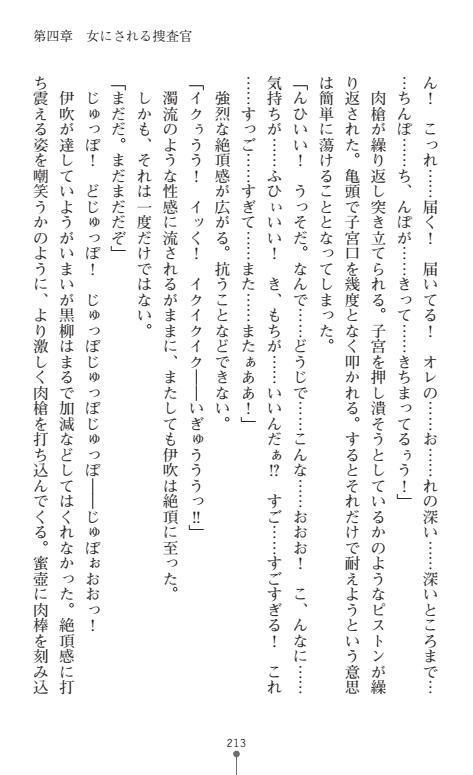 第四章　女にされる捜査官
ん！　こっれ……届く！　届いてる！　オレの……お……れの深い……深いところまで…
…ちんぽ……ち、んぽが……きって……きちまってるぅう！」
　肉槍が繰り返し突き立てられる。子宮を押し潰そうとしているかのようなピストンが繰
り返された。亀頭で子宮口を幾度となく叩かれる。するとそれだけで耐えようという意思
は簡単に蕩けることとなってしまった。
「んひいい！　うっそだ。なんで……どうじで……こんな……おおお！　こ、んなに……
気持ちが……ふひぃいい！　き、もちが……いいんだぁ!?　すご……すごすぎる！　これ
……すっご……すぎて……また……またぁああ！」
　強烈な絶頂感が広がる。抗うことなどできない。
「イクぅうう！　イッく！　イクイクイク――いぎゅうううっ!!」
　濁流のような性感に流されるがままに、またしても伊吹は絶頂に至った。
　しかも、それは一度だけではない。
「まだだ。まだまだだぞ」
　じゅっぽ！　どじゅっぽ！　じゅっぽじゅっぽじゅっぽ――じゅぽぉおおっ！
　伊吹が達していようがいまいが黒柳はまるで加減などしてはくれなかった。絶頂感に打
ち震える姿を嘲笑うかのように、より激しく肉槍を打ち込んでくる。蜜壺に肉棒を刻み込
213